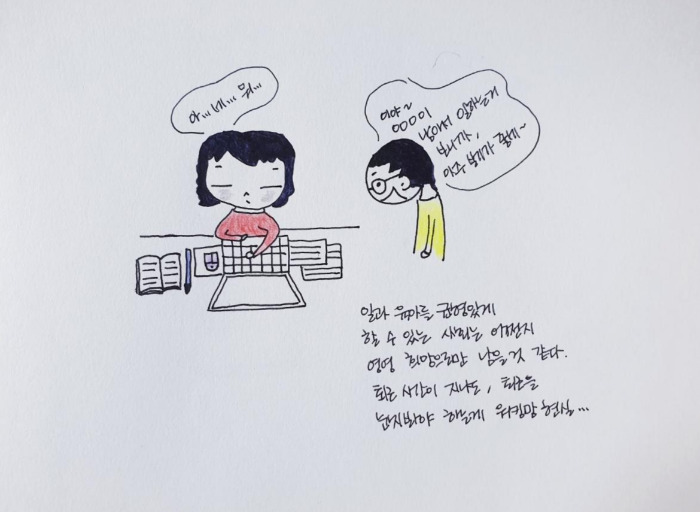 아... 네... 뭐...
이야~
OOO이
남아서 일하는거
보니까,
아주 보기가 좋네~
일과 육아를 균형있게
할 수 있는 사회는 어쩐지
영영 희망으로만 남을 것 같다.
퇴근 시간이 지나도, 퇴근을
눈치봐야 하는게 워킹맘 현실...